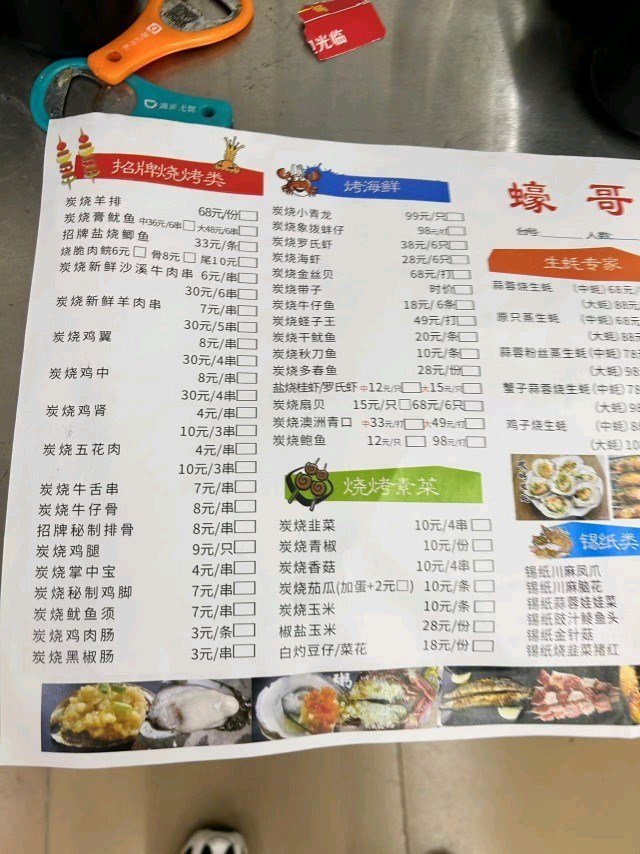 光临
招牌烧烤类
炭烧羊排 68元/份
炭烧膏鱿鱼 中36元/6串 大48元/6串
招牌盐烧鲫鱼 33元/条
烧脆肉鲩6元 骨8元 尾10元
炭烧新鲜沙溪牛肉串 6元/串
30元/6串
炭烧新鲜羊肉串 7元/串
30元/5串
炭烧鸡翼 8元/串
30元/4串
炭烧鸡中 8元/串
30元/4串
炭烧鸡肾 4元/串
10元/3串
炭烧五花肉 4元/串
10元/3串
炭烧牛舌串 7元/串
炭烧牛仔骨 8元/串
招牌秘制排骨 8元/串
炭烧鸡腿 9元/只
炭烧掌中宝 4元/串
炭烧秘制鸡脚 7元/串
炭烧鱿鱼须 7元/串
炭烧鸡肉肠 3元/条
炭烧黑椒肠 3元/串
烤海鲜
炭烧小青龙 99元/只
炭烧象拨蚌仔 98元/打
炭烧罗氏虾 38元/6只
炭烧海虾 28元/6只
炭烧金丝贝 68元/打
炭烧带子 时价
炭烧牛仔鱼 18元/6条
炭烧蛏子王 49元/打
炭烧干鱿鱼 20元/条
炭烧秋刀鱼 10元/条
炭烧多春鱼 28元/份
盐烧桂虾/罗氏虾 中12元/只 大15元/只
炭烧扇贝 15元/只 68元/6只
炭烧澳洲青口 中33元/打 大49元/打
炭烧鲍鱼 12元/只 98元/打
烧烤素菜
炭烧韭菜 10元/4串
炭烧青椒 10元/份
炭烧香菇 10元/4串
炭烧茄瓜(加蛋+2元) 10元/条
炭烧玉米 10元/条
椒盐玉米 28元/份
白灼豆仔/菜花 18元/份
蠔哥
台号: 人数:
生蚝专家
蒜蓉烧生蚝 (中蚝) 68元/
(大蚝) 88元/
原只蒸生蚝 (中蚝) 68元
(大蚝) 88
蒜蓉粉丝蒸生蚝 (中蚝) 78
(大蚝) 98
蟹子蒜蓉烧生蚝 (中蚝) 78
(大蚝) 98
鸡子烧生蚝 (中蚝) 98
(大蚝)
锡纸类
锡纸川麻凤爪
锡纸川麻脑花
锡纸蒜蓉娃娃菜
锡纸豉汁鲮鱼头
锡纸金针菇
锡纸烧韭菜猪红